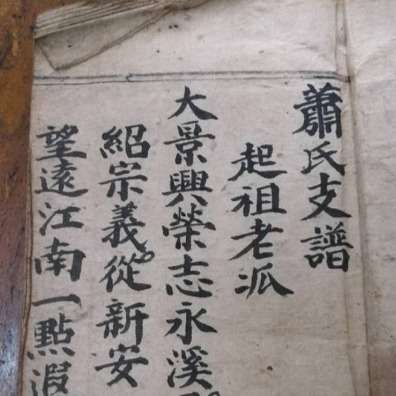 蕭氏支譜
起祖老派
大景興榮志永溪
紹宗義從新安
望遠江南一點